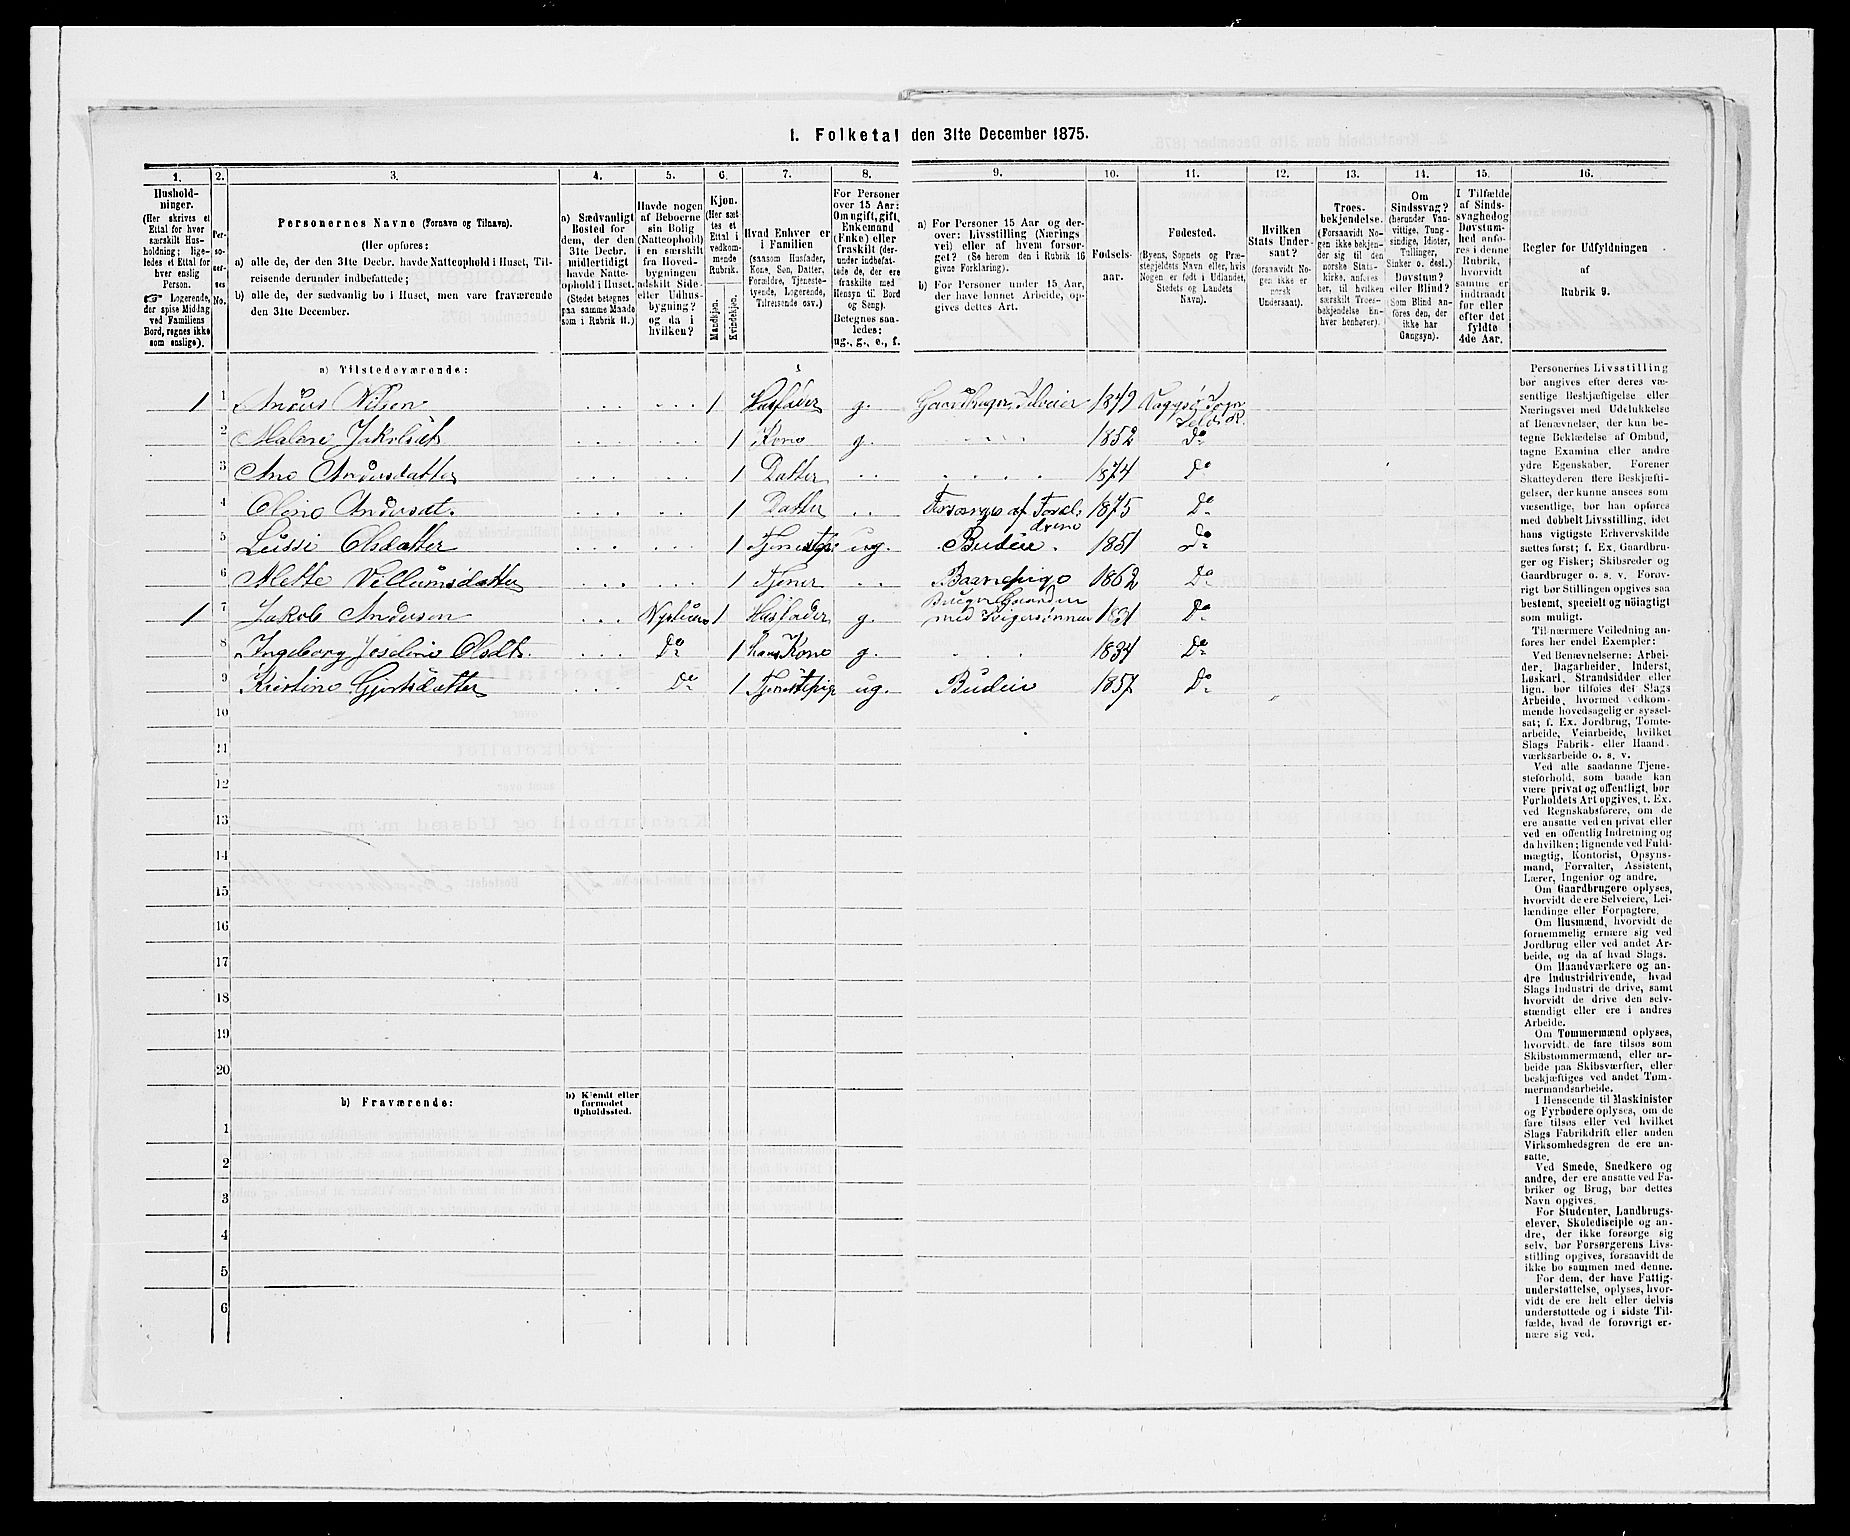 1. Folketal den 31te December 1875.
1. 2. 3. 4. 5. 6. 7. 8. 9. 10. 11. 12. 13. 14. 15. 16.
Hushold-
ninger.
(Her skrives et
Ettal for hver
særskilt Hus-
holdning; lige-
ledes et Ettal for
hver enslig
Person.
☞ Logerende,
der spise Middag
ved Familiens
Bord, regnes ikke
som enslige).
Per-
so-
ner-
nes
No.
Personernes Navne (Fornavn og Tilnavn).
(Her opføres:
a) alle de, der den 31te Decbr. havde Natteophold i Huset, Til-
reisende derunder indbefattede;
b) alle de, der sædvanlig bo i Huset, men vare fraværende
den 31te December.
a) Sædvanligt
Bosted for
dem, der den
31te Decbr.
midlertidigt
havde Natte-
ophold i Huset.
(Stedet betegnes
paa samme Maade
som i Rubrik 11.)
Havde nogen
af Beboerne
sin Bolig
(Natteophold)
i en særskilt
fra Hoved-
bygningen
adskilt Side-
eller Udhus-
bygning?
og da i
hvilken?
Kjøn.
(Her sæt-
tes et
Ettal i
vedkom-
mende
Rubrik.
Mandkjøn.
Kvindekjøn.
Hvad Enhver er
i Familien
(saasom Husfader,
Kone, Søn, Datter,
Forældre, Tjeneste-
tyende, Logerende,
Tilreisende osv.)
For Personer
over 15 Aar:
Om ugift, gift,
Enkemand
(Enke) eller
fraskilt (der-
under indbefat-
tede de, der ere
fraskilte med
Hensyn til Bord
og Seng).
Betegnes saa-
ledes:
ug., g., e., f.
a) For Personer 15 Aar og der-
over: Livsstilling (Nærings-
vei) eller af hvem forsør-
get? (Se herom den i Rubrik 16
givne Forklaring).
b) For Personer under 15 Aar,
der have lønnet Arbeide, op-
gives dettes Art.
Fødsels-
aar.
Fødested.
(Byens, Sognets og Præ-
stegjeldets Navn eller, hvis
Nogen er født i Udlandet,
Stedets og Landets
Navn).
Hvilken
Stats Under-
saat?
(forsaavidt No-
gen ikke er
norsk
Undersaat).
Troes-
bekjendelse.
(Forsaavidt No-
gen ikke bekjen-
der sig til den
norske Stats-
kirke, anføres
her, til hvilken
særskilt Troes-
bekjendelse En-
hver henhører).
Om
Sindssvag?
(herunder Van-
vittige, Tung-
sindige, Idioter,
Tullinger,
Sinker o. desl.)
Døvstum?
eller Blind?
(Som Blind an-
føres den, der
ikke har
Gangsyn).
I Tilfælde
af Sinds-
svaghed og
Døvstum-
hed anfø-
res i denne
Rubrik,
hvorvidt
samme er
indtraadt
før eller
efter det
fyldte
4de Aar.
Regler for Udfyldningen
af
Rubrik 9.
a) Tilstedeværende:
1 1 Anders Nilsen 1 Husfader g. Gaardbruger, Selveier 1849 Vaagsø Sogn
Selø P.
2 Malene Jakobsdt 1 Kone g. 1852 Do
3 Ane Andersdatter 1 Datter 1874 Do
4 Oline Andersdt. 1 Datter Forsørges af Foræl-
drene 1875 Do
5 Lussi Olsdatter 1 Tjenestepi ug. Budeie. 1851 Do
6 Mette Villumsdatter 1 Tjener Barnepige 1862 Do
1 7 Jakob Andersen 1 Husfader g. Gaarden
med Svigersønnen Do
8 Ingeborg Joseline Olsdt. Do 1 hans Kone g. 1834 Do
9 Kristine Gjertsdatter Do 1 Tjenestepige ug. Budeie 1857 Do
10
11
12
13
14
15
16
17
18
19
20
b) Fraværende:
b) Kjendt eller
formodet
Opholdssted.
1
2
3
4
5
6
Personernes Livsstilling
bør angives efter deres væ-
sentlige Beskjæftigelse eller
Næringsvei med Udelukkelse
af Benævnelser, der kun be-
tegne Beklædelse af Ombud,
tagne Examina eller andre
ydre Egenskaber. Forener
Skatteyderen flere Beskjæfti-
gelser, der kunne ansees som
væsentlige, bør han opføres
med dobbelt Livsstilling, idet
hans vigtigste Erhvervskilde
sættes først; f. Ex. Gaardbru-
ger og Fisker; Skibsreder og
Gaardbruger o. s. v. Forøv-
rigt bør Stillingen opgives saa
bestemt, specielt og nøiagtigt
som muligt.
Til nærmere Veiledning an-
føres her endel Exempler:
Ved Benævnelserne: Arbei-
der, Dagarbeider, Inderst,
Løskarl, Strandsidder eller
lign. bør tilføies det Slags
Arbeide, hvormed vedkom-
mende hovedsagelig er syssel-
sat; f. Ex. Jordbrug, Tomte-
arbeide, Veiarbeide, hvilket
Slags Fabrik- eller Haand-
værksarbeide o. s. v.
Ved alle saadanne Tjene-
steforhold, som baade kan
være privat og offentligt, bør
Forholdets Art opgives, t. Ex.
ved Regnskabsførere, om de
ere ansatte ved en privat eller
ved en offentlig Indretning og
da hvilken; lignende ved Fuld-
mægtig, Kontorist, Opsyns-
mand, Forvalter, Assistent,
Lærer, Ingeniør og andre.
Om Gaardbrugere oplyses,
hvorvidt de ere Selveiere, Lei-
lændinge eller Forpagtere.
Om Husmænd, hvorvidt de
fornemmelig ernære sig ved
Jordbrug eller ved andet Ar-
beide, og da af hvad Slags.
Om Haandværkere og an-
dre Industridrivende, hvad
Slags Industri de drive, samt
hvorvidt de drive den selv-
stændigt eller ere i andres
Arbeide.
Om Tømmermænd oplyses,
hvorvidt de fare tilsøs som
Skibstømmermænd, eller ar-
beide paa Skibsværfter, eller
beskjæftiges ved andet Tøm-
mermandsarbeide.
I Henseende til Maskinister
og Fyrbødere oplyses, om de
fare tilsøs eller ved hvilket
Slags Fabrikdrift eller anden
Virksomhedsgren de ere an-
satte.
Ved Smede, Snedkere og
andre, der ere ansatte ved Fa-
briker og Brug, bør dettes
Navn opgives.
For Studenter, Landbrugs-
elever, Skoledisciple og an-
dre, der ikke forsørge sig
selv, bør Forsørgerens Livs-
stilling opgives, forsaavidt de
ikke bo sammen med denne.
For dem, der have Fattig-
understøttelse, oplyses, hvor-
vidt de ere helt eller delvis
understøttede og i sidste Til-
fælde, hvad de forøvrigt er-
nære sig ved.